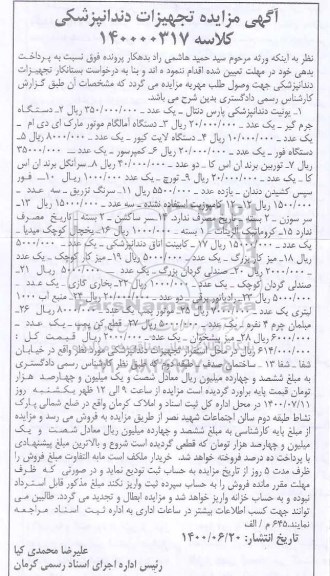 آگهی مزایده تجهیزات دندانپزشکی
کلاسه ۱۴۰۰۰۰۳۱۷
نظر به اینکه ورثه مرحوم سید حمید هاشمی راد بدهکار پرونده فوق نسبت به پرداخت
بدهی خود در مهلت تعیین شده اقدام ننمود ه اند و بنا به درخواست بستانکار تجهیزات
دندانپزشکی جهت وصول طلب مهریه مزایده می گردد که مشخصات آن طبق گزارش
کارشناس رسمی دادگستری بدین شرح می باشد.
۱. یونیت دندانپزشکی پارس دنتال - یک عدد - ۳۵۰/۰۰۰/۰۰۰ ریال ۲- دستگاه
جرم گیر - یک عدد - ۲۰/۰۰۰/۰۰۰ ریال ۳- دستگاه آمالگام موتور مارک ای دی ام -
یک عدد - ۱۰/۰۰۰/۰۰۰ ریال ۴- دستگاه لایت کیور - یک عدد - ۸۰۰۰/۰۰۰ ریال ۵-
دستگاه فور - یک عدد - ۲۰/۰۰۰/۰۰۰ ریال ۶- کمپرسور - یک عدد - ۳۵۰۰۰/۰۰۰
ریال ۷- توربین برند ان اس کا - دو عدد - ۴۰/۰۰۰/۰۰۰ ریال ۸- سرآنگل برند ان اس
کا - یک عدد - ۲۰/۰۰۰/۰۰۰ ریال ۹- تورچ - یک عدد - ۱۰۰۰/۰۰۰ ریال ۱۰- فورسپس
کشیدن دندان - یازده عدد - ۵۵۰۰/۰۰۰ ریال ۱۱- سرنگ تزریق - سه عدد -
۱۵۰۰/۰۰۰ ریال ۱۲- کامپوزیت استفاده شده - سه عدد - ۱۵۰۰/۰۰۰ ریال ۱۳-
سر سوزن - ۲ بسته - تاریخ مصرف ندارد. ۱۴- سر ساکشن - ۲ بسته - تاریخ مصرف
ندارد ۱۵- کروماتیک آلژینات - ۱ بسته - ۱۰۰۰/۰۰۰ ریال ۱۶- یخچال کوچک میدیا -
یک عدد - ۱۵۰۰۰/۰۰۰ ریال ۱۷- کابینت اتاق دندانپزشکی - یک عدد - ۵۰۰۰/۰۰۰
ریال ۱۸- میز کار بزرگ - یک عدد - ۵۰۰۰/۰۰۰ ریال ۱۹- میز کار کوچک - یک عدد
- ۲۰۰۰/۰۰۰ ریال ۲۰- صندلی گردان بزرگ - یک عدد - ۵۰۰۰/۰۰۰ ریال ۲۱-
صندلی گردان کوچک - یک عدد - ۱۰۰۰/۰۰۰ ریال ۲۲- بخاری گازی - یک عدد -
۵۰۰۰/۰۰۰ ریال ۲۳- رادیاتور برقی - دو عدد - ۲۰/۰۰۰/۰۰۰ ریال ۲۴- منبع آب ۱۰۰۰
مبلمان چرم ۴ نفره - یک عدد - ۵۰۰۰/۰۰۰ ریال ۲۷- قطع کن پمپ - یک عدد -
۶۰۰۰/۰۰۰ ریال ۲۸- میز پیشخوان - یک عدد - ۲۰۰۰/۰۰۰ ریال قیمت کل :
۶۱۴/۰۰۰/۰۰۰ ریال در محل استقرار تجهیزات دندانپزشکی مورد نظر واقع در خیابان
شفا - شفا ۱۳ - ساختمان صدف - طبقه که طبق نظر کارشناس رسمی دادگستری
به مبلغ ششصد و چهارده میلیون ریال معادل شصت و یک میلیون و چهارصد هزار
تومان قیمت پایه برآورد گردیده است مزایده از ساعت ۹ الی ۱۲ ظهر یکشنبه روز
۱۴۰۰/۰۷/۱۱ در محل اداره کل ثبت اسناد و املاک کرمان واقع در ضلع شمالی پارک
نشاط طبقه دوم سالن اجتماعات شهید نصر از طریق مزایده به فروش می رسد و مزایده
از مبلغ پایه کارشناسی به مبلغ ششصد و چهارده میلیون ریال معادل شصت و یک
میلیون و چهارصد هزار تومان که قطعی گردیده است شروع و بالاترین مبلغ پیشنهادی
با پرداخت ده درصد فروخته خواهد شد. خریدار ملکف است مابه التفاوت مبلغ فروش را
ظرف مدت ۵ روز از تاریخ مزایده به حساب ثبت تودیع نماید و در صورتی که ظرف
مهلت مقرر مانده فروش را به حساب سپرده ثبت واریز نکند مبلغ مذکور قابل استرداد
نبوده و به حساب خزانه واریز خواهد شد و مزایده ابطال و تجدید می گردد. طالبین می
توانند جهت کسب اطلاعات بیشتر در ساعات اداری به اداره ثبت اسناد مراجعه
نمایند. ۶۴۵ م / الف
تاریخ انتشار: ۱۴۰۰/۰۶/۲۰
علیرضا محمدی کیا
رئیس اداره اجرای اسناد رسمی کرمان